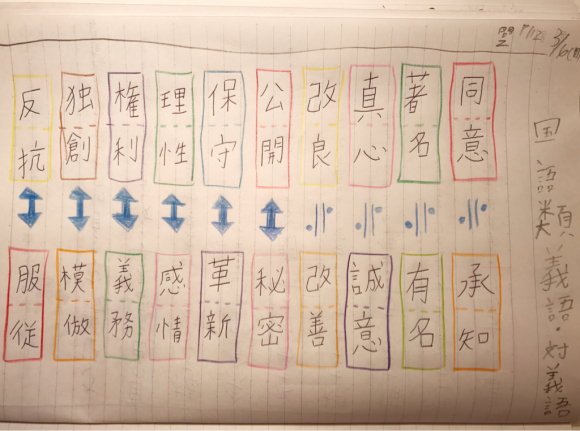 3/6(月)
国語 類義語・対義語
同意 ≒ 承知
著名 ≒ 有名
真心 ≒ 誠意
改良 ≒ 改善
公開 ↕ 秘密
保守 ↕ 革新
理性 ↕ 感情
権利 ↕ 義務
独創 ↕ 模倣
反抗 ↕ 服従